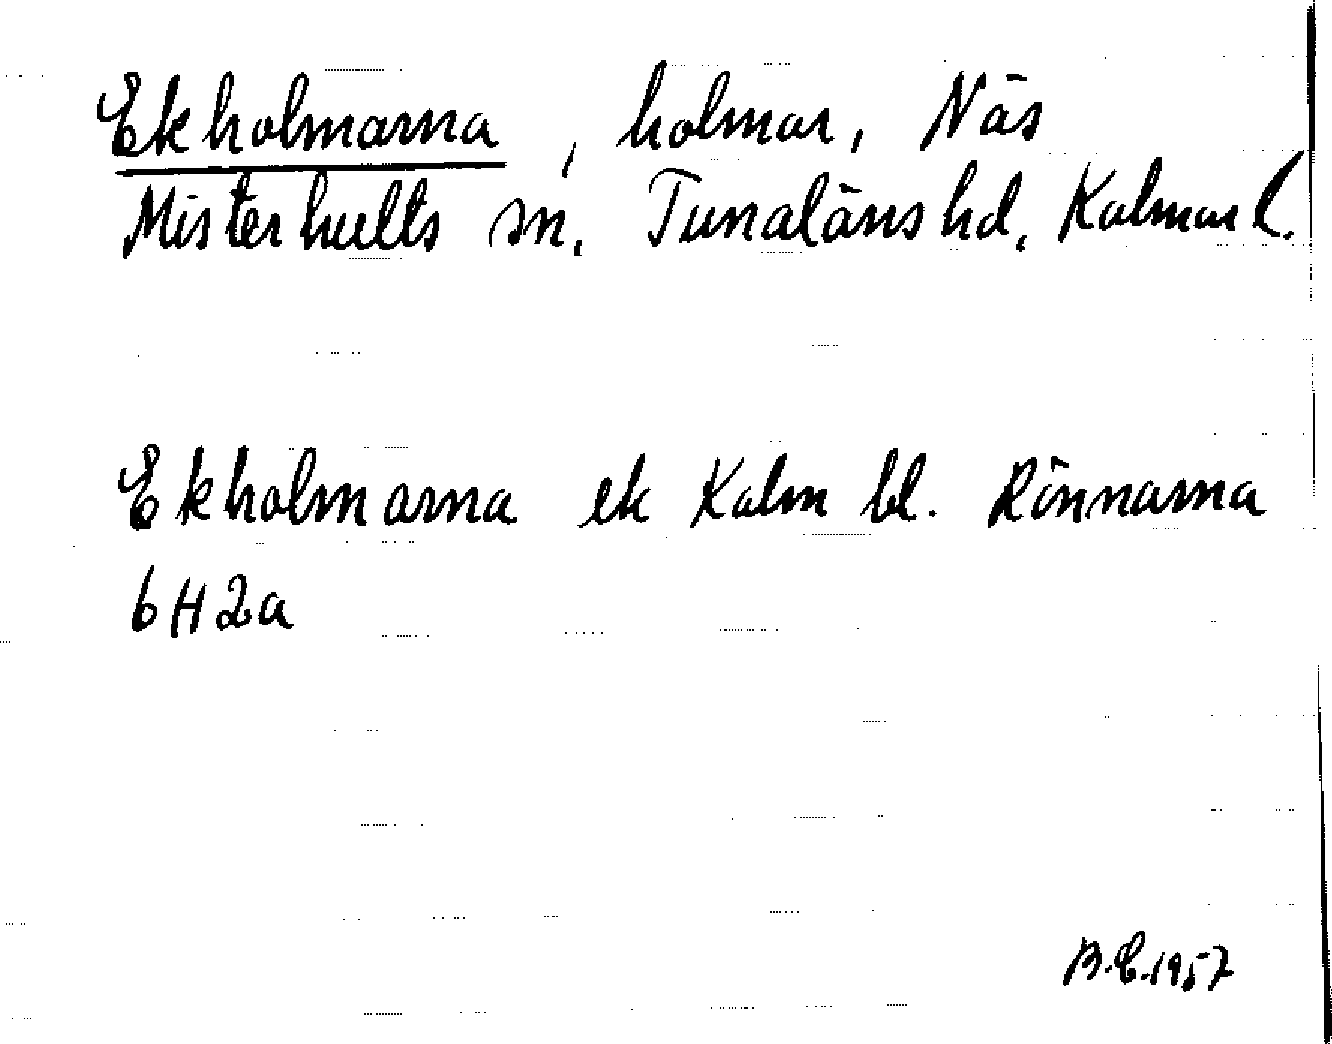 Ekholmarna, holmar, Näs
Misterhults sn, Tunaläns hd, Kalmar l.
Ekholmarna ek Kalm bl. Rönnarna
6H2a
B.E.1957